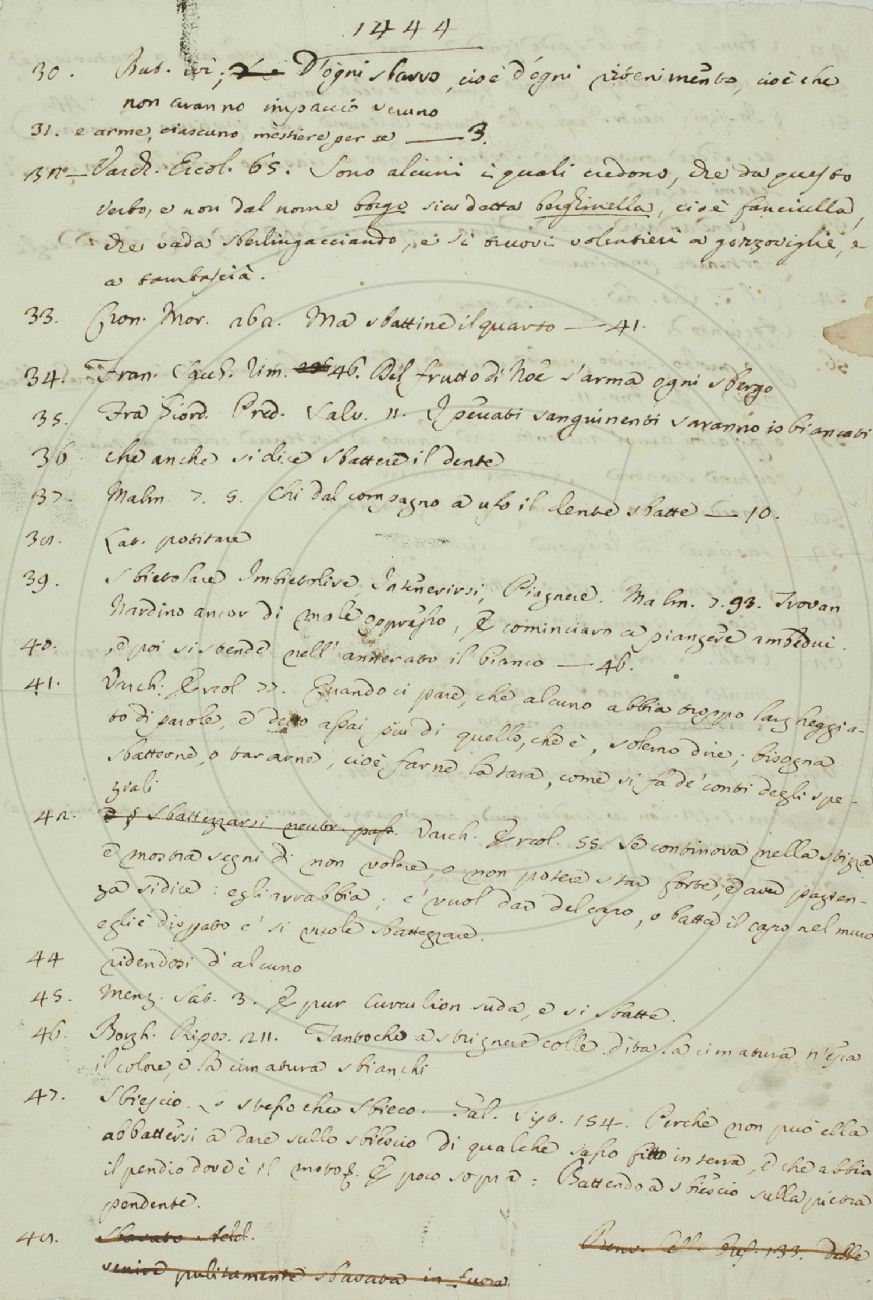 1444
30. But. ivi; D'ogni sbarro, cioè d'ogni ritenimento, cioè che
non avranno impaccio veruno
31. e arme, ciascuno mestiere per se — 3.
32 — Varch. Ercol. 65. Sono alcuni i quali credono, che da questo
verbo, e non dal nome borgo sia detta berghinella, cioè fanciulla,
che vada sberlingacciando, e si truovi volentieri a gozzoviglie, e
a tambascià.
33. Cron. Mor. 262. Ma sbattine il quarto — 41.
34. Fran. Sacch. rim. 46. Del frutto di Noè s'arma ogni sbergo
35. Fra Giord. Pred. Salv. 11. I peccati sanguinenti saranno isbiancati
36 che anche si dice sbattere il dente
37. Malm. 7. 5. Chi dal compagno a ufo il dente sbatte — 10.
38. Lat. potitare
39. Sbietolare Imbietolire, Intenerirsi, Piagnere. Malm. 7. 93. Trovan
Nardino ancor di male oppresso, E cominciaro a piangere ambedui.
40. , e poi si stende nell' annerato il bianco — 46.
41. Varch: Ercol 77. Quando ci pare, che alcuno abbia troppo largheggia-
to di parole, e detto assai più di quello, che è, solemo dire; bisogna
sbatterne, o tararne, cioè farne la tara, come si fa de' conti degli spe-
ziali
42. e § Sbattezzarsi neutr. pass. Varch. Ercol. 55. Se continova nella stizza
e mostra segni di non volere, o non potere star forte, e aver pazien-
za si dice: egli arrabbia; e' vuol dar del capo, o batter il capo nel muro
egli è disperato e' si vuole sbattezzare.
44 ridendosi d'alcuno
45. Menz. Sat. 3. E pur Curculion suda, e si sbatte.
46. Borgh. Ripos. 211. Tantochè a strignere colle dita la cimatura n'esca
il colore, e la cimatura sbianchi
47. Sbiescio. Lo stesso che Sbieco. Gal. Sist. 154. Perchè non può ella
abbattersi a dare sullo sbiescio di qualche sasso fitto in terra, e che abbia
il pendio dov'è il moto? E poco sopra: Battendo a sbiescio sulla pietra
pendente.
48. Sbavato Add. Benv. Cell. Oref. 133. Dette
venire pulitamente sbavata in fuora